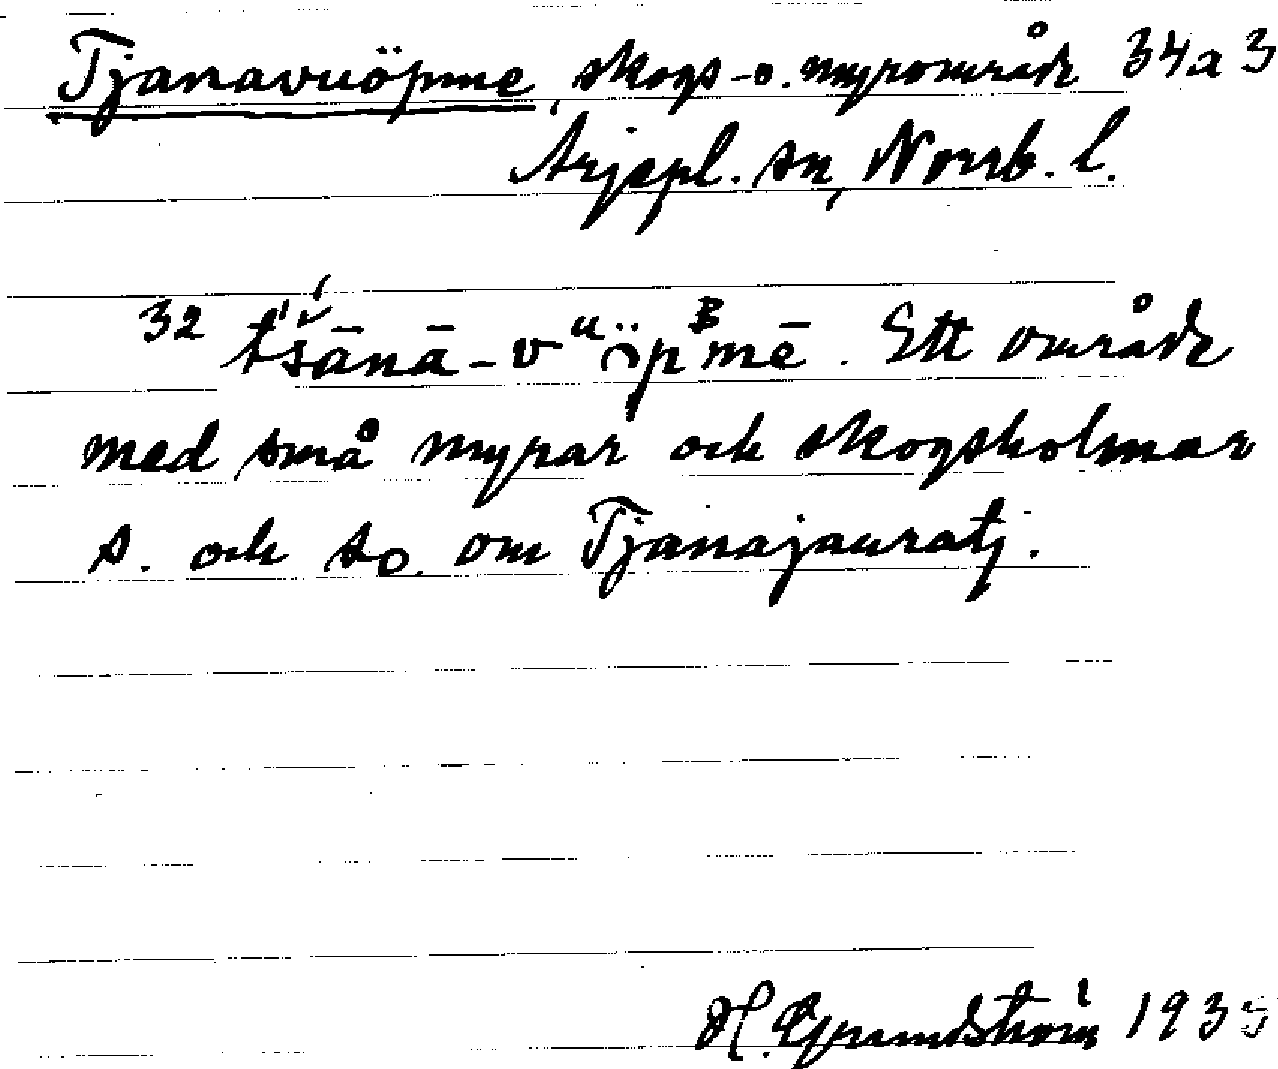 Tjanavuöpme, skogs- o. myrområde 34a3
Arjepl. sn, Norrb. l.
32 t́šānā-vᵘöpᴮmē. Ett område
med små myrar och skogsholmar
s. och so. om Tjanajauratj.
H. Grundström 1935